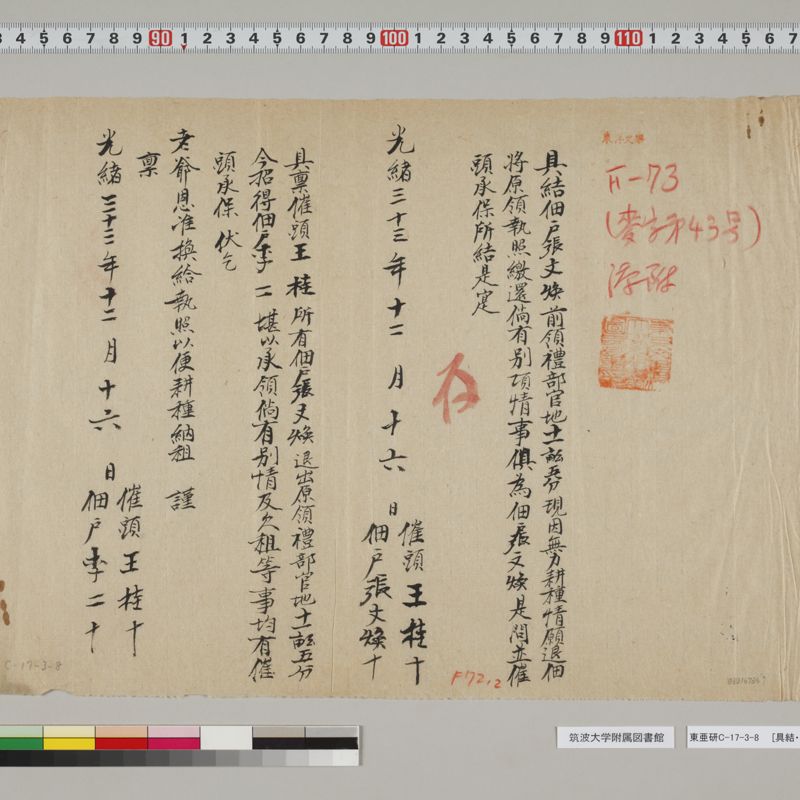 3 4 5 6 7 8 9 90 1 2 3 4 5 6 7 8 9 100 1 2 3 4 5 6 7 8 9 110 1 2 3 4 5 6 7
Ⅱ-73
(麥字第43号)
具結佃戶張文煥前領禮部官地十一畝五分現因無力耕種情願退佃
將原領執照繳還倘有別項情事俱為佃張文煥是問並催
頭承保所結是寔
光緒三十三年十二月十六日
催頭王桂十
佃戶張文煥十
存
F72,2
具稟催頭王桂所有佃戶張文煥退出原領禮部官地十一畝五分
今招得佃戶李二堪以承領倘有別情及欠租等事均有催
頭承保伏乞
老爺恩准換給執照以便耕種納租 謹
稟
光緒三十三年十二月十六日
催頭王桂十
佃戶李二十
C-17-3-8
筑波大学附属図書館
東亜研C-17-3-8 [具結・